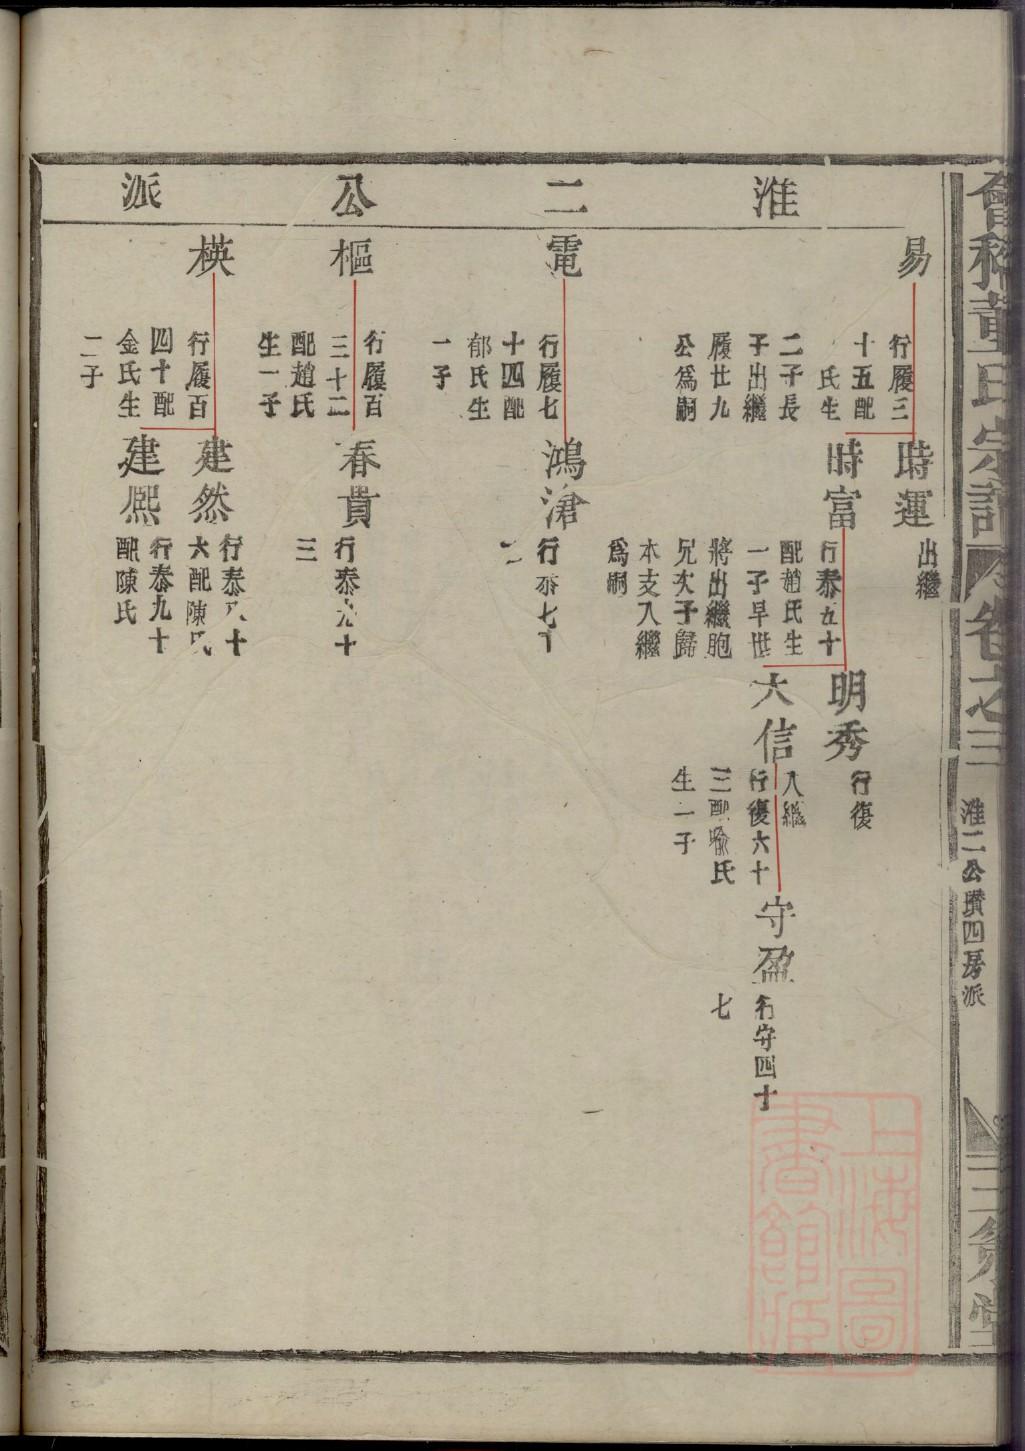 會稽董氏宗譜
卷之三
淮二公瓚四房派
三策堂
淮二公派
易
行履三
十五配
氏生
二子長
子出繼
履廿九
公爲嗣
時運
出繼
時富
行泰五十
配趙氏生
一子早世
將出繼胞
兄次子歸
本支入繼
爲嗣
明秀
行復
大信
入繼
行復六十
三配喻氏
生一子
守盈
行守四十
七
電
行履七
十四配
郁氏生
一子
鴻滄
行泰七十
樞
行履百
三十二
配趙氏
生一子
春貴
行泰九十
三
模
行履百
四十配
金氏生
二子
建然
行泰八十
六配陳氏
建熙
行泰九十
配陳氏
上海圖
書館藏